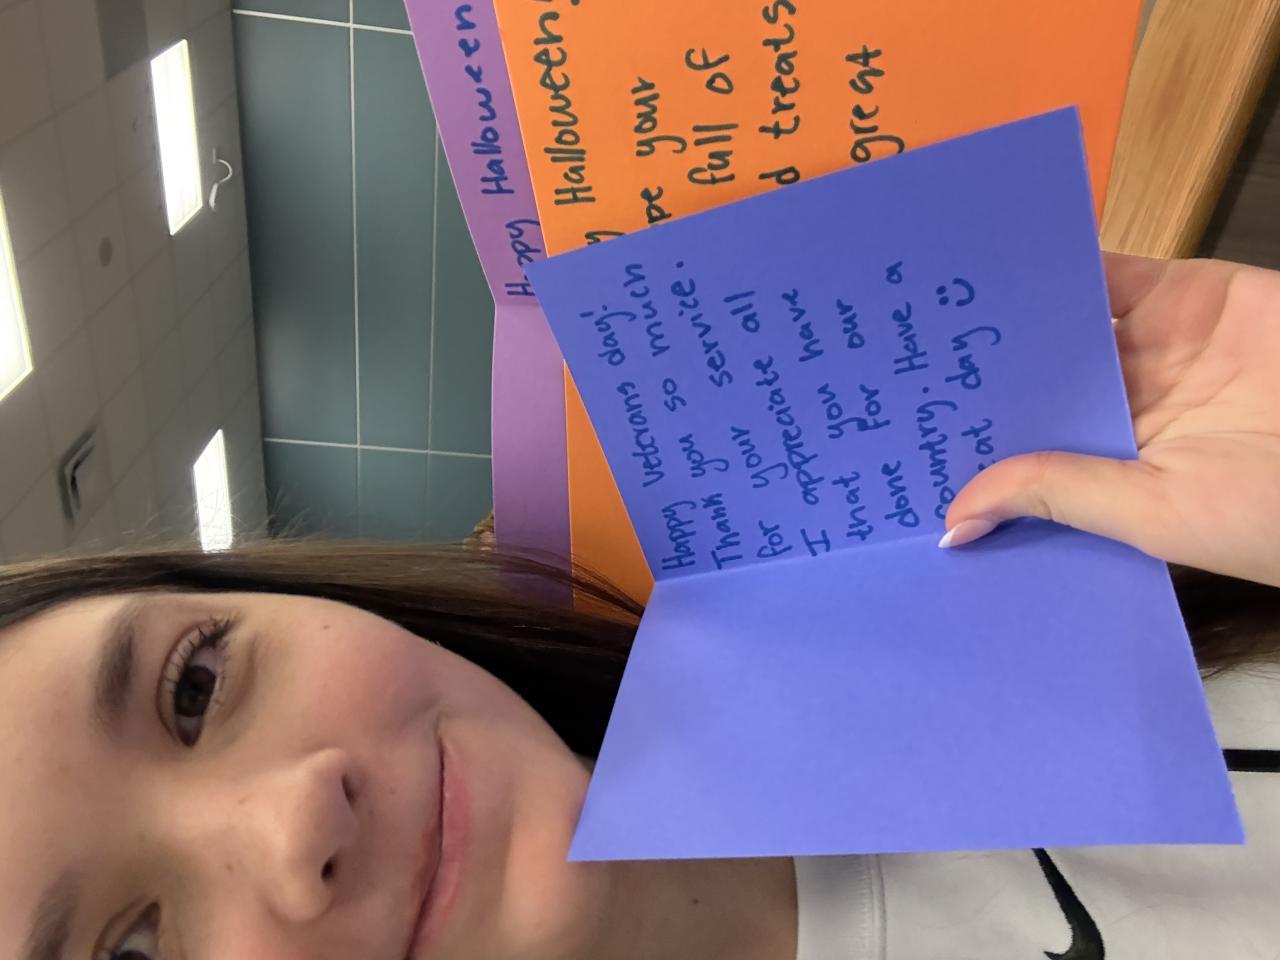 Happy Halloween
Halloween!
your
full of
treats
great
Happy veterans day!
Thank you so much
for your service.
I appreciate all
that you have
done for our
country. Have a
day :)